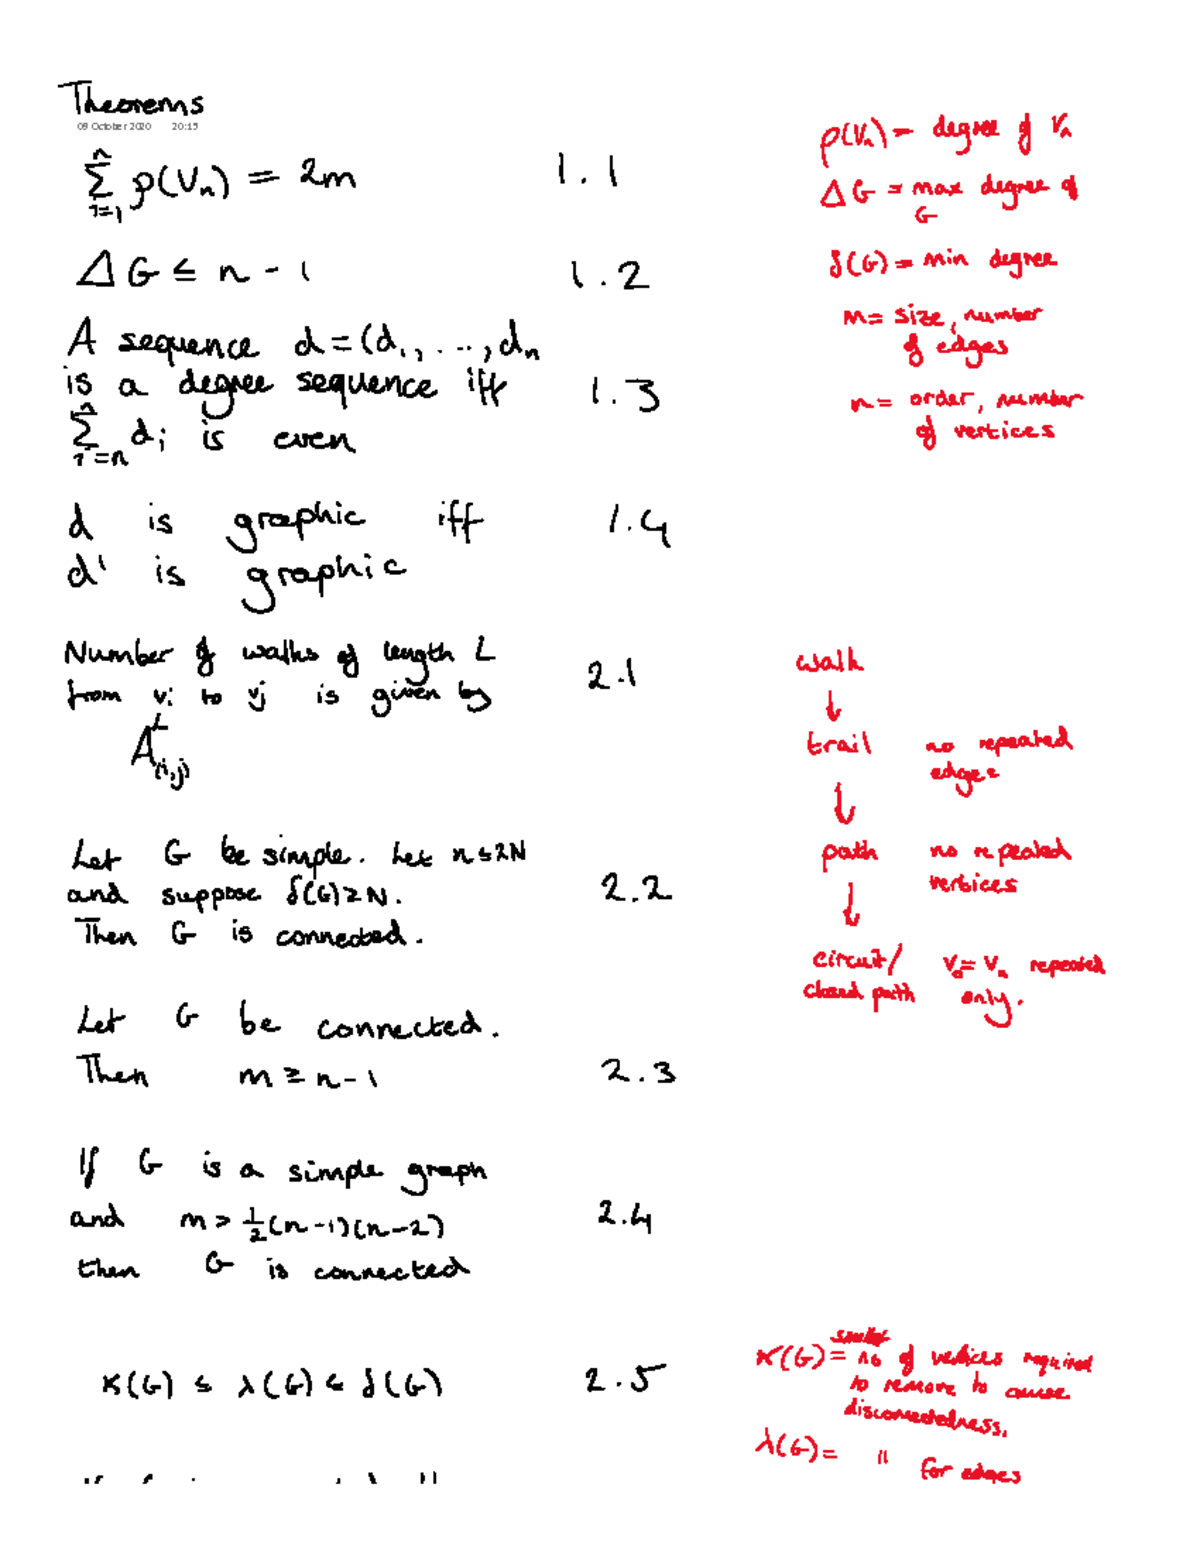 Theorems
09 October 2020 20:15
n
Σ ρ(Vₙ) = 2m 1.1
i=1
ΔG ≤ n - 1 1.2
A sequence d=(d₁, ..., dₙ
is a degree sequence iff 1.3
n
Σ dᵢ is even
i=n
d is graphic iff 1.4
d' is graphic
Number of walks of length L
from vi to vj is given by 2.1
Aᴸ(i,j)
Let G be simple. Let n≤2N
and suppose δ(G)≥N. 2.2
Then G is connected.
Let G be connected.
Then m ≥ n-1 2.3
If G is a simple graph
and m > ½(n-1)(n-2) 2.4
then G is connected
κ(G) ≤ λ(G) ≤ δ(G) 2.5
ρ(Vₙ) = degree of Vₙ
ΔG = max degree of
G
δ(G) = min degree
m= size, number
of edges
n= order, number
of vertices
walk
↓
trail no repeated
edges
↓
path no repeated
vertices
↓
circuit/ V₀= Vₙ repeated
closed path only.
smallest
κ(G) = no of vertices required
to remove to cause
disconnectedness.
λ(G) = " for edges